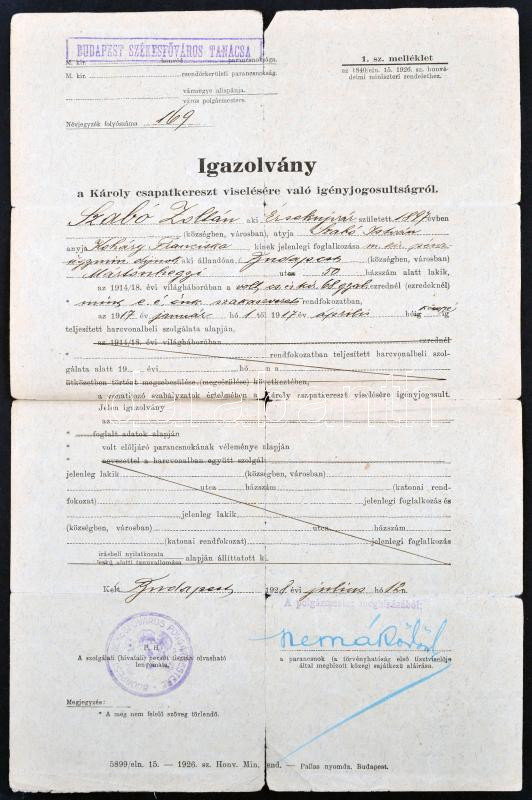 BUDAPEST SZÉKESFŐVÁROS TANÁCSA
M. kir. honvéd parancsnoksága.
M. kir. csendőrkerületi parancsnokság.
vármegye alispánja.
város polgármestere.
Névjegyzék folyószáma 169
1. sz. melléklet
az 1840/eln. 15. 1926. sz. honvé-
delmi miniszteri rendelethez.
Igazolvány
a Károly csapatkereszt viselésére való igényjogosultságról.
Szabó Zoltán aki Érsekujvár született 1897 évben
(községben, városban), atyja Szabó István
anyja Koháry Franciska kinek jelenlegi foglalkozása m. kir. pénz-
ügymin. dijnok aki állandóan Budapest (községben, városban)
Mártonhegyi utca 50 házszám alatt lakik,
az 1914/18. évi világháborúban a volt cs. és kir. 61. gyal. ezrednél (ezredeknél)
* mint e. é. önk. szakaszvezető rendfokozatban,
az 1917 év január hó 1 től 1917 év április hó ig
teljesített harcvonalbeli szolgálata alapján,
az 1914/18. évi világháborúban ezrednél
* rendfokozatban teljesített harcvonalbeli szol-
gálata alatt 19 évi hó n a
ütközetben történt megsebesülése (megsérülése) következtében,
a vonatkozó szabályzatok értelmében a Károly csapatkereszt viselésére igényjogosult.
Jelen igazolvány
az
* foglalt adatok alapján
* volt elöljáró parancsnokának véleménye alapján
* nevezettel a harcvonalban együtt szolgált
jelenleg lakik (községben, városban)
utca házszám (katonai rend-
fokozat) jelenlegi foglalkozás és
jelenleg lakik
(községben, városban) utca házszám
(katonai rendfokozat) jelenlegi foglalkozás
írásbeli nyilatkozata
eskü alatti tanuvallomása alapján állíttatott ki.
Kelt Budapest 1928 évi julius hó 12 n.
A polgármester meghízásából:
P. H.
A szolgálati (hivatali) pecsét tisztán olvasható
lenyomata.
a parancsnok (a törvényhatóság első tisztviselője
által megbízott közeg) sajátkezű aláírása.
Megjegyzés:
* A meg nem felelő szöveg törlendő.
5899/eln. 15. — 1926. sz. Honv. Min. rend. — Pallas nyomda, Budapest.